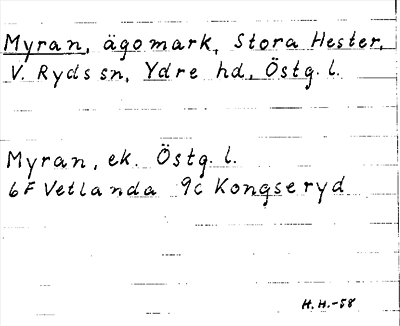 Myran, ägomark, Stora Hester,
V. Ryds sn, Ydre hd, Östg. l.
Myran, ek. Östg. l.
6F Vetlanda 9c Kongseryd
H.H.-58